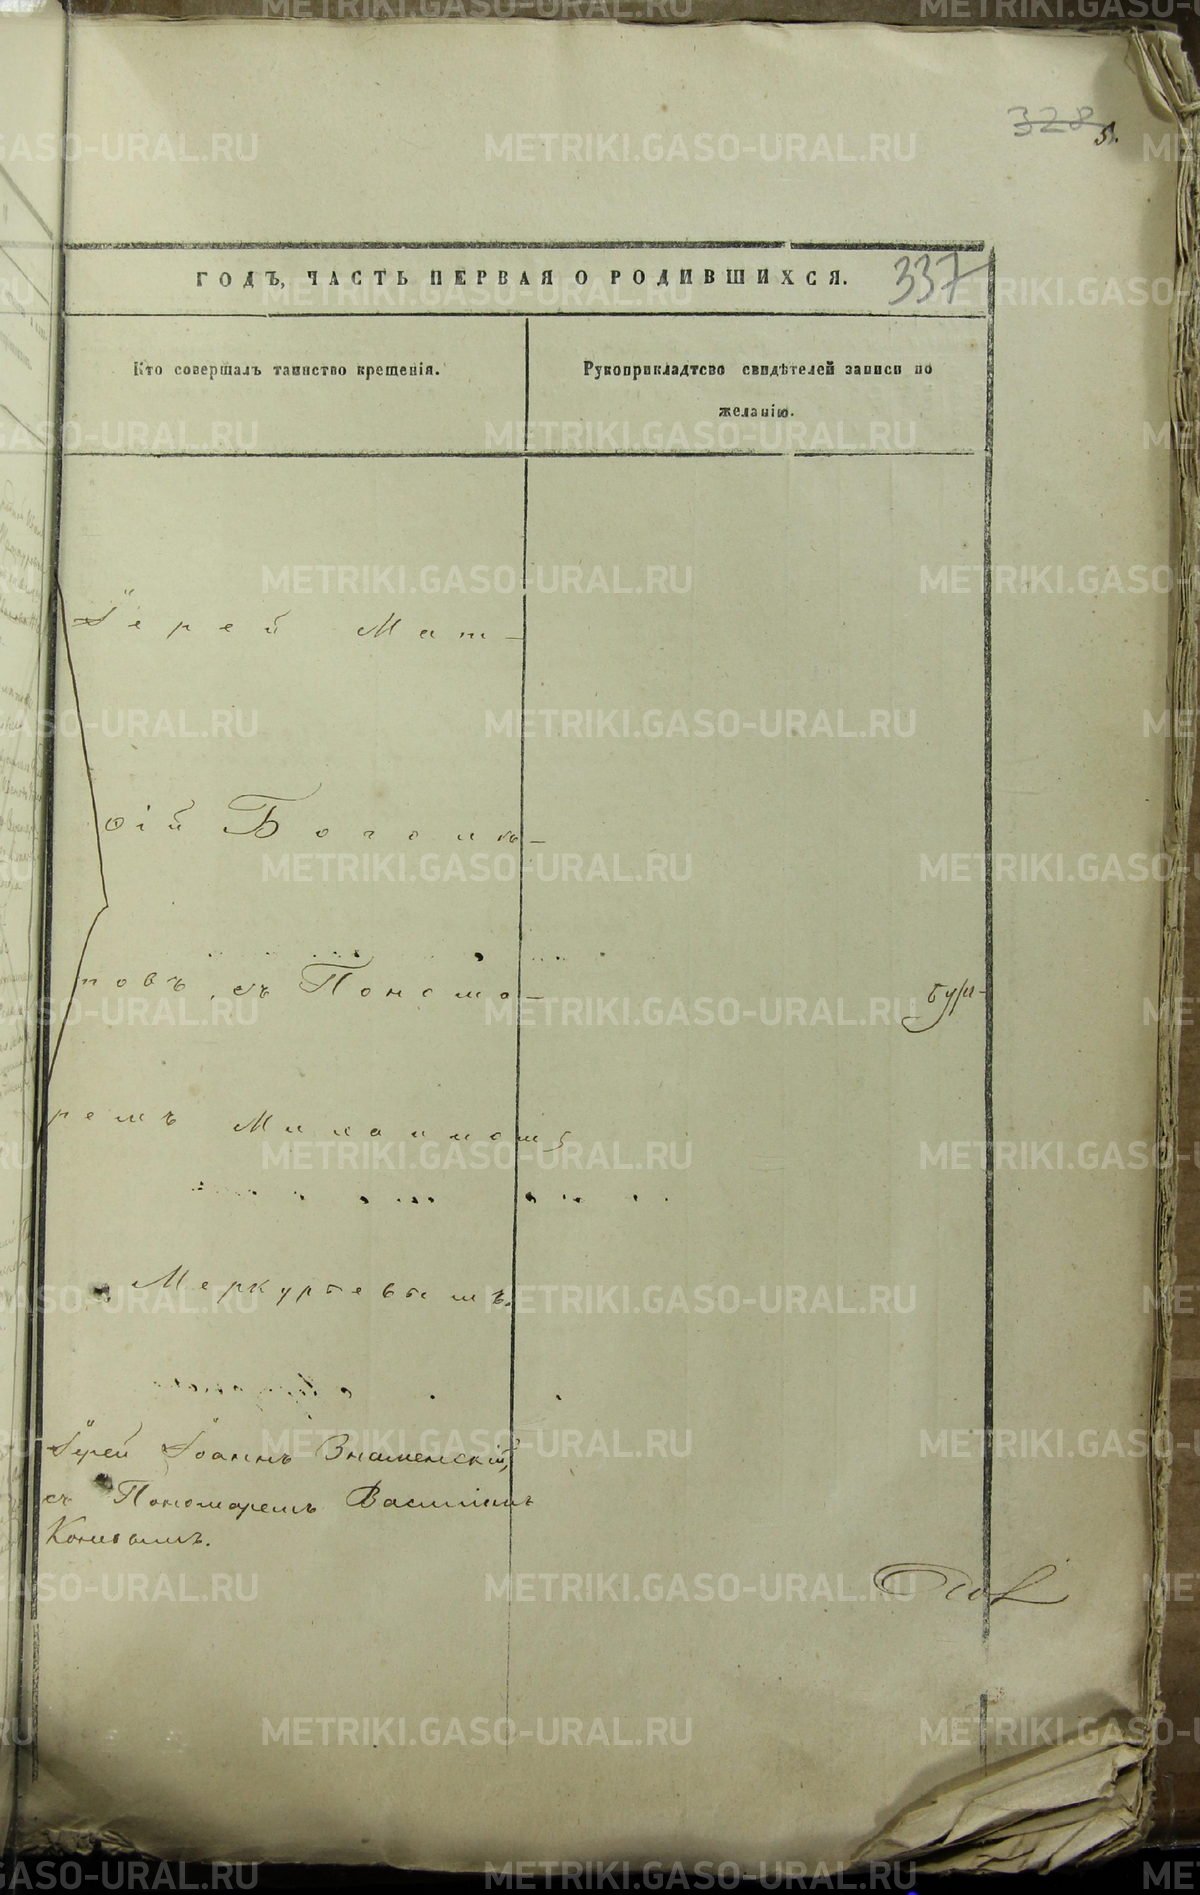 328 5.
ГОДЪ, ЧАСТЬ ПЕРВАЯ О РОДИВШИХСЯ. 337
Кто совершалъ таинство крещенія.
Рукоприкладтсво свидѣтелей записи по
желанію.
Іерей Мат-
ѳій Боголю-
повъ, съ Понома-
ремъ Михаиломъ
Меркурьевымъ.
Іерей Іоаннъ Знаменскій,
съ Пономаремъ Василіемъ
METRIKI.GASO-URAL.RU